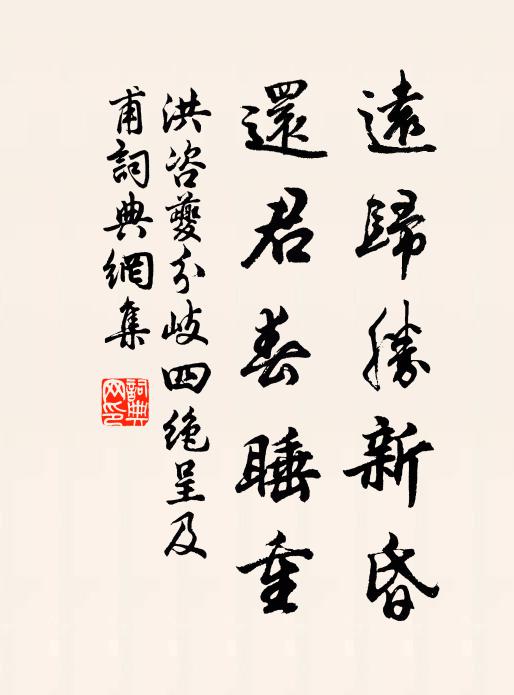 遠歸勝新昏
還君春睡重
洪咨夔分岐四绝呈及
甫詞典網集
詞典
网印